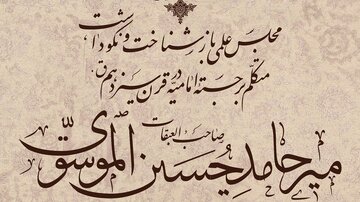 مجلس علمی بازشناخت و نکوداشت
متکلم برجستهٔ امامیه در قرن سیزدهم ق.
صاحب العبقات
میر حامد حسین الموسوی